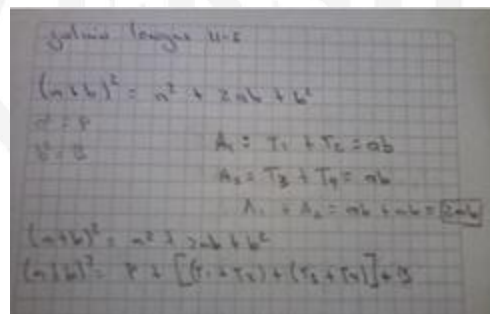 (a+b)² = a² + 2ab + b²
a² = P
b² = Q
A₁ = T₁ + T₂ = ab
A₂ = T₃ + T₄ = ab
A₁ + A₂ = ab + ab = 2ab
(a+b)² = a² + 2ab + b²
(a+b)² = P + [(T₁+T₂) + (T₃+T₄)] + Q